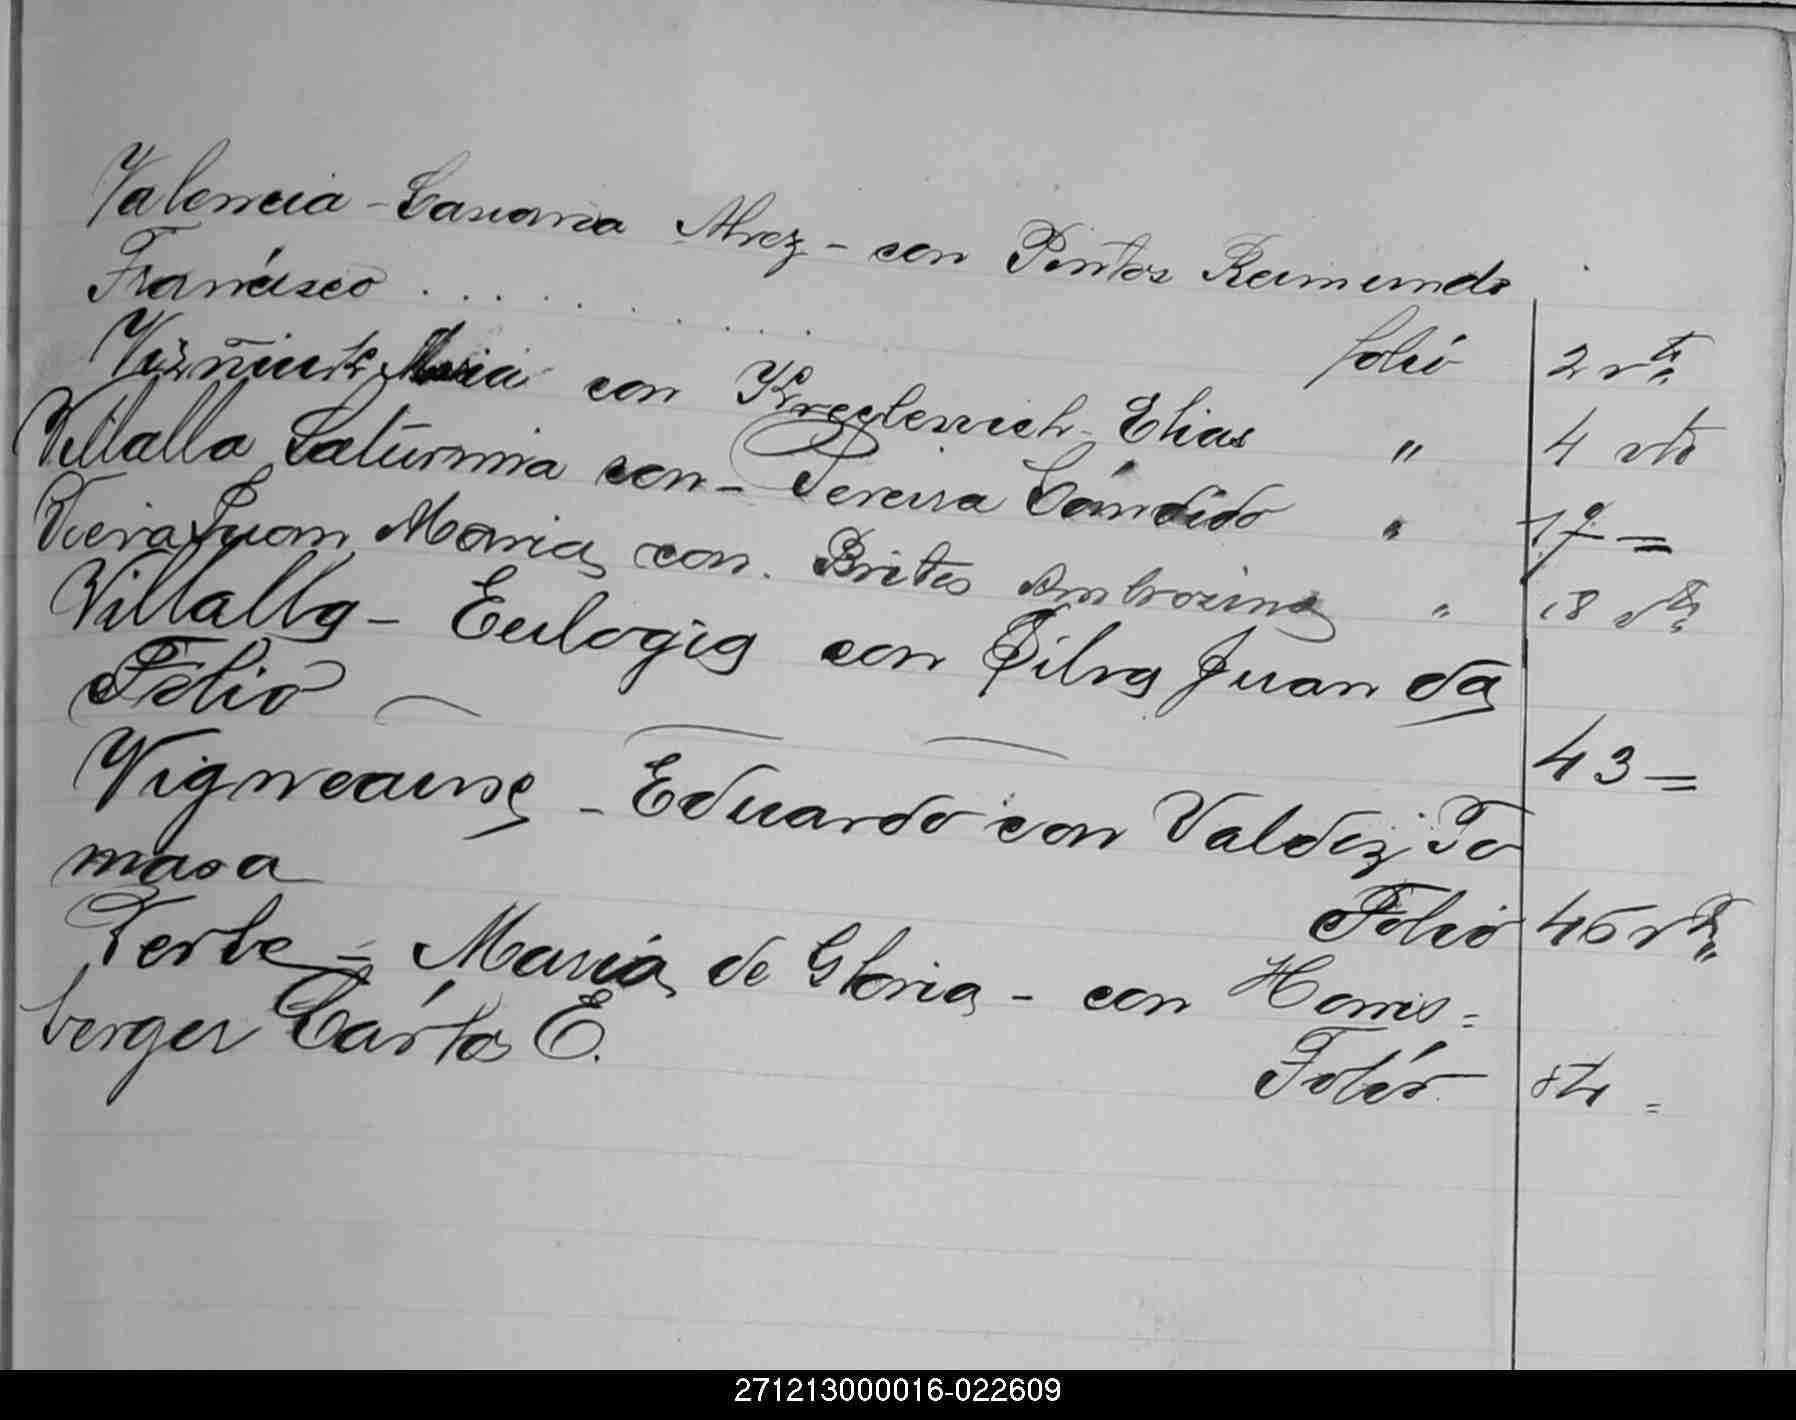 Valencia - Lauana Alvez - con Pintos Raimundo
Francisco . . . . . . . . . . folio 2 vta.
María con Elias " 4 vto
Villalla Saturnina con - Pereira Cándido " 17 =
Vieira Juan Maria con. Brites Ambrosina " 18 vta.
Villalba - Eulogia con Silva Juan da
Folio 43 =
Vigneause - Eduardo con Valdez To
masa Folio 46 vta.
Maria de Gloria - con Harris =
berger Cárlos E. Folio 54 =
271213000016-022609